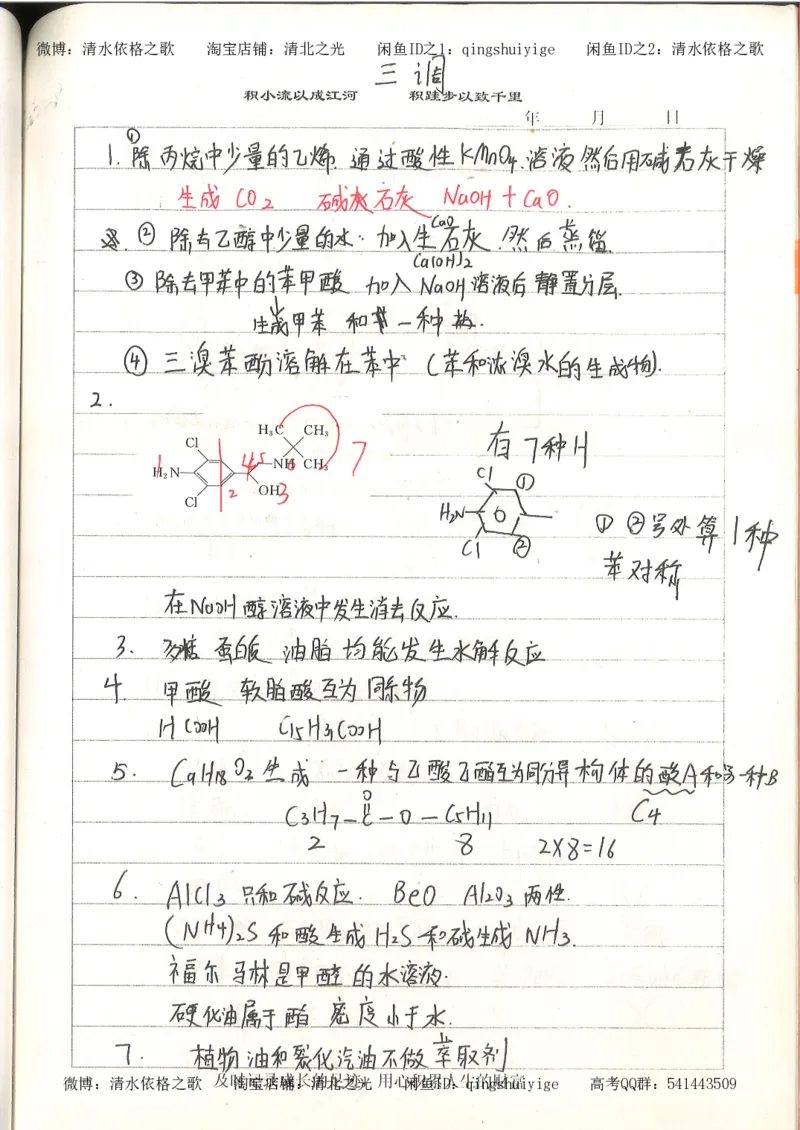 微博：清水依格之歌 淘宝店铺：清北之光 闲鱼ID之1：qingshuiyige 闲鱼ID之2：清水依格之歌
三调
积小流以成江河 积跬步以致千里
年 月 日
①
1. 除丙烷中少量的乙烯. 通过酸性KMnO4溶液 然后用碱石灰干燥
生成CO2 碱石灰 NaOH + CaO.
② 除去乙醇中少量的水: 加入生石灰. 然后蒸馏
CaO
Ca(OH)2
③ 除去甲苯中的苯甲酸 加入NaOH溶液后静置分层.
生成甲苯 和 一种
④ 三溴苯酚溶解在苯中 (苯和浓溴水的生成物).
2.
H3C CH3
Cl
H2N NH CH3
OH
Cl
1 2 3 4 5 6 7
有7种H
Cl ①
H2N
Cl ②
① ②号处算1种
苯对称
在NaOH醇溶液中发生消去反应.
3. 多糖 蛋白质 油脂 均能发生水解反应
4. 甲酸 软脂酸互为同系物
HCOOH C15H31COOH
5. C9H18O2生成 一种与乙酸乙酯互为同分异构体的酸A和另一种B
O
C3H7-C-O-C5H11 C4
2 8 2×8=16
6. AlCl3 只和碱反应. BeO Al2O3 两性.
(NH4)2S 和酸生成H2S 和碱生成NH3.
福尔马林是甲醛的水溶液.
硬化油属于酯 密度小于水.
7. 植物油和裂化汽油不做萃取剂
及时记录成长的足迹 用心积累人生的财富
微博：清水依格之歌 淘宝店铺：清北之光 闲鱼ID：qingshuiyige 高考QQ群：541443509